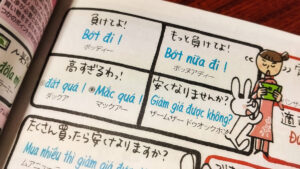 負けてよ!
Bớt đi !
ボッディー
もっと負けてよ!
Bớt nữa đi !
ボッヌアディー
高すぎるわっ!
đắt quá ! Mắc quá !
マックアー
安くなりませんか?
Giảm giá được không?
たくさん買ったら安くなりますか?
Mua nhiều thì giảm giá đượ